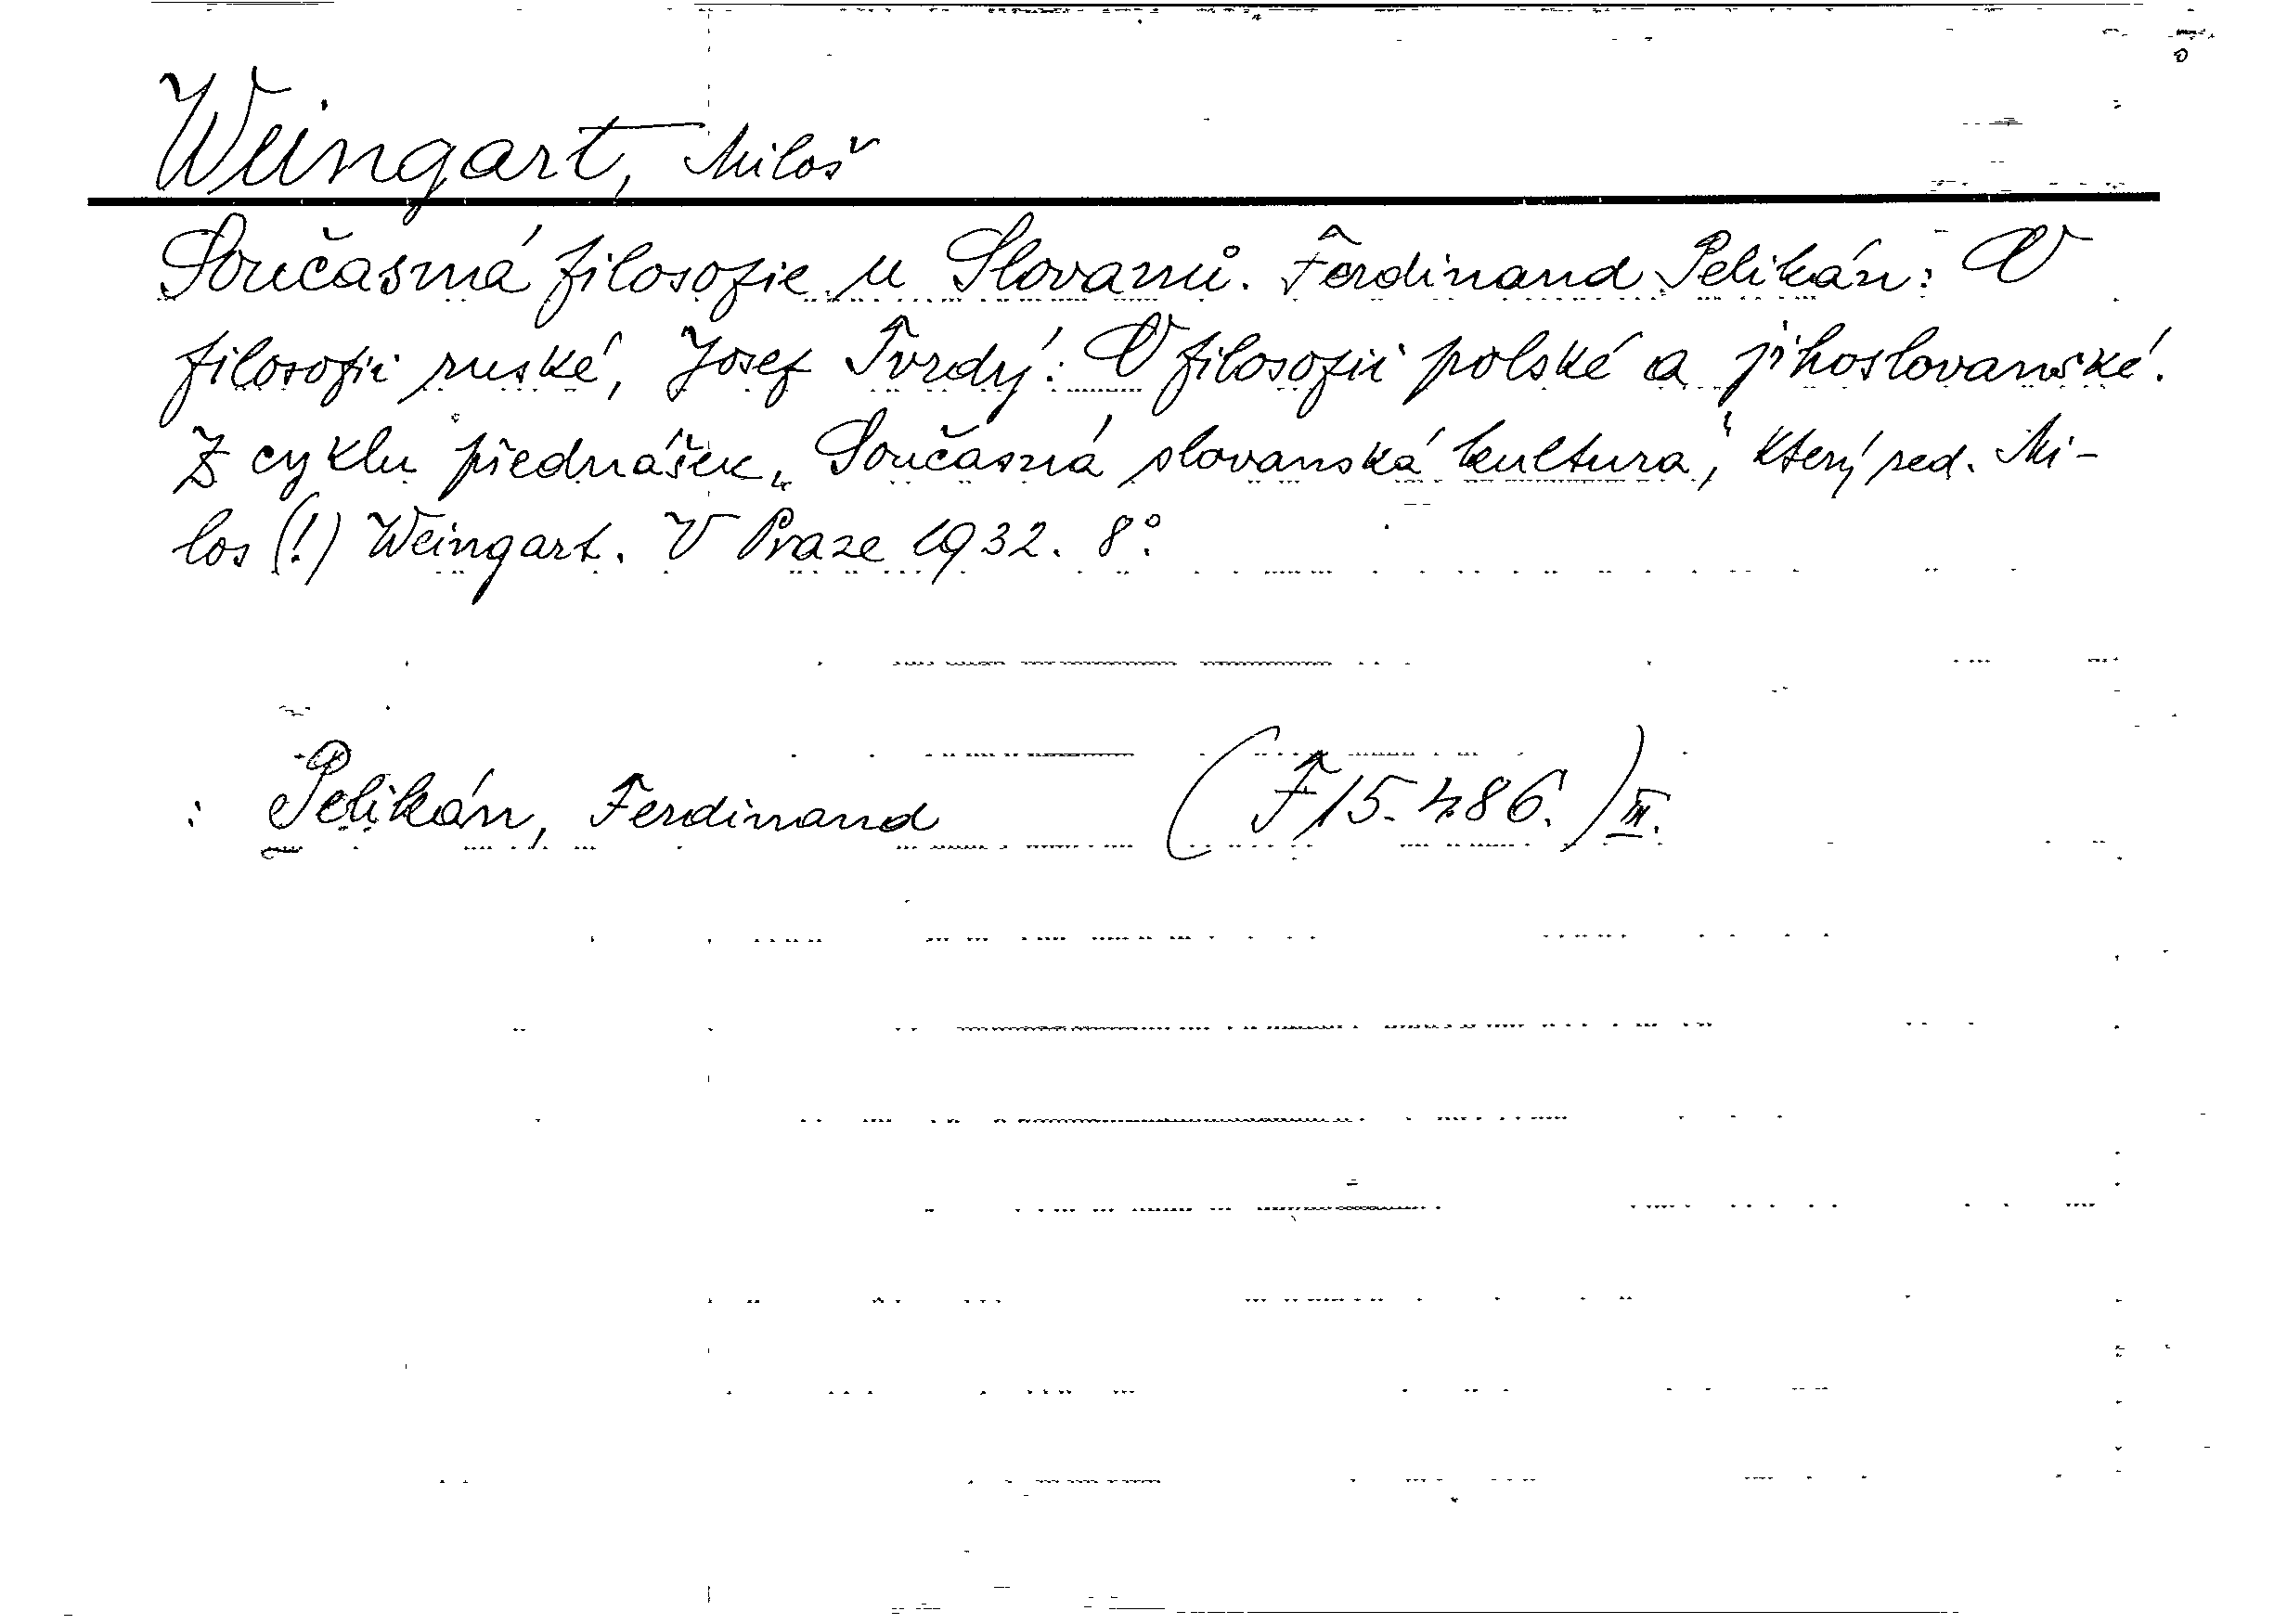 Weingart, Miloš
Současná filosofie u Slovanů. Ferdinand Pelikán: O
filosofii ruské, Josef Tvrdý: O filosofii polské a jihoslovanské.
Z cyklu přednášek „Současná slovanská kultura“, který red. Mi-
los (!) Weingart. V Praze 1932. 8°.
: Pelikán, Ferdinand (F 15.486.) III.